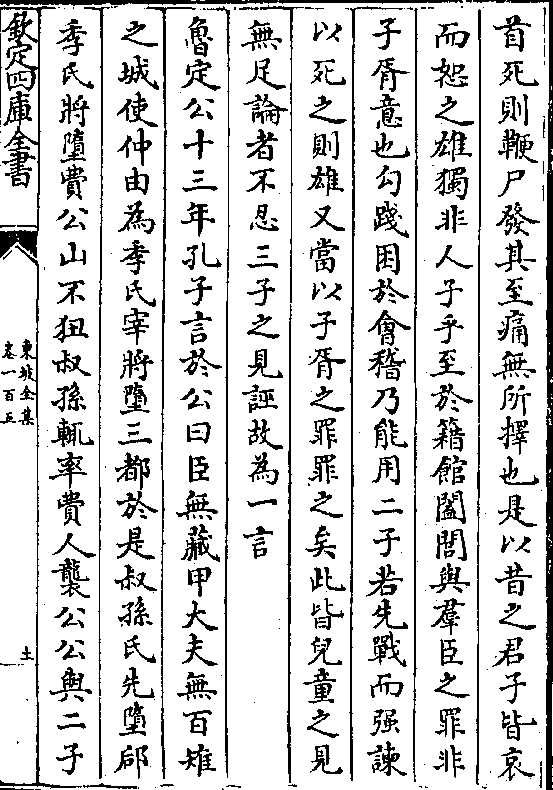 首死則鞭尸發其至痛無所擇也是以昔之君子皆哀
而恕之雄獨非人子乎至於籍館闔閭與羣臣之罪非
子胥意也勾踐困於會稽乃能用二子若先戰而强諫
以死之則雄又當以子胥之罪罪之矣此皆兒童之見
無足論者不忍三子之見誣故為一言
魯定公十三年孔子言於公曰臣無藏甲大夫無百雉
之城使仲由為季氏宰將墮三都於是叔孫氏先墮郈
季氏將墮費公山不狃叔孫輒率費人襲公公與二子
欽定四庫全書
東坡全集
卷一百五
土